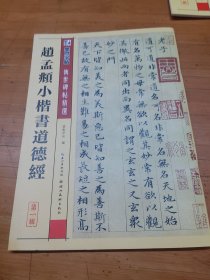 傳世碑帖精選
趙孟頫小楷書道德經
第一輯
老子
道可道非常道名可名非常名無名天地之始
有名萬物之母常無欲以觀其妙常有欲以觀
其徼此兩者同出而異名同謂之玄玄之又玄衆
妙之門
天下皆知美之為美斯惡已皆知善之為善斯不
善已故有無之相生難易之相成長短之相形